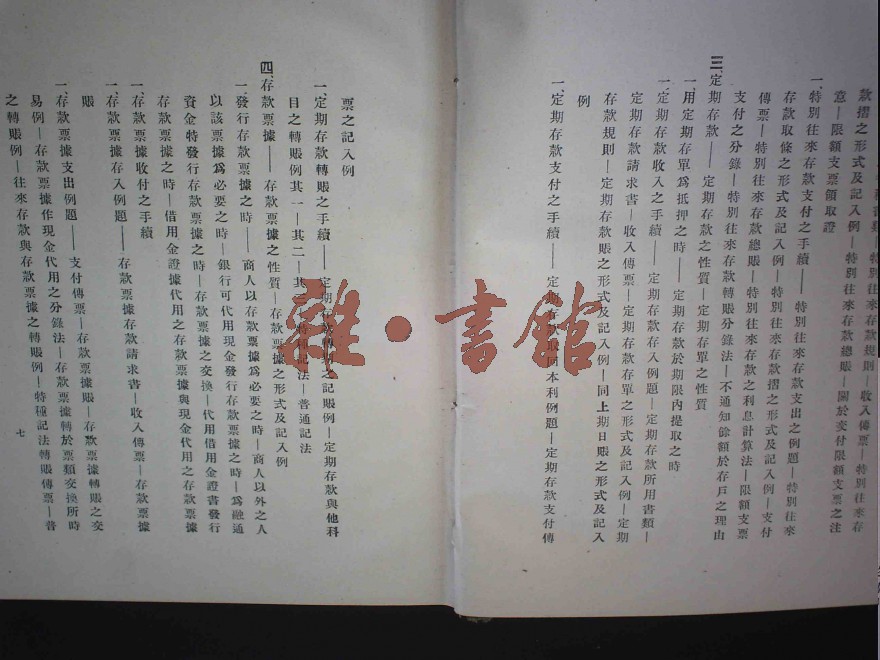 款摺之形式及記入例—特別往來存款規則—收入傳票—特別往來存
意—限額支票領取證
一、特別往來存款支付之手續——特別往來存款支出之例題—特別往來
存款取條之形式及記入例—特別往來存款摺之形式及記入例—支付
傳票—特別往來存款總賬—特別往來存款之利息計算法—限額支票
支付之分錄—特別往來存款轉賬分錄法—不通知餘額於存戶之理由
三、定期存款——定期存款之性質—定期存單之性質
一、用定期存單爲抵押之時——定期存款於期限內提取之時
一、定期存款收入之手續——定期存款存入例題—定期存款所用書類—
定期存款請求書—收入傳票—定期存款存單之形式及記入例—定期
存款規則—定期存款賬之形式及記入例—同上期日賬之形式及記入
例
一、定期存款支付之手續——定期存款取回本利例題—定期存款支付傳
票之記入例
一、定期存款轉賬之手續——定期存款轉賬之記賬例—定期存款與他科
目之轉賬例其一—其二—其三—特種記法—普通記法
四、存款票據——存款票據之性質—存款票據之形式及記入例
一、發行存款票據之時——商人以存款票據爲必要之時—商人以外之人
以該票據爲必要之時—銀行可代用現金發行存款票據之時—爲融通
資金特發行存款票據之時—存款票據之交換—代用借用金證書發行
存款票據之時—借用金證據代用之存款票據與現金代用之存款票據
一、存款票據收付之手續
一、存款票據存入例題——存款票據存款請求書—收入傳票—存款票據
賬
一、存款票據支出例題——支付傳票—存款票據賬—存款票據轉賬之交
易例—存款票據作現金代用之分錄法—存款票據轉於票類交換所時
之轉賬例—往來存款與存款票據之轉賬例—特種記法轉賬傳票—普
七
雜·書館